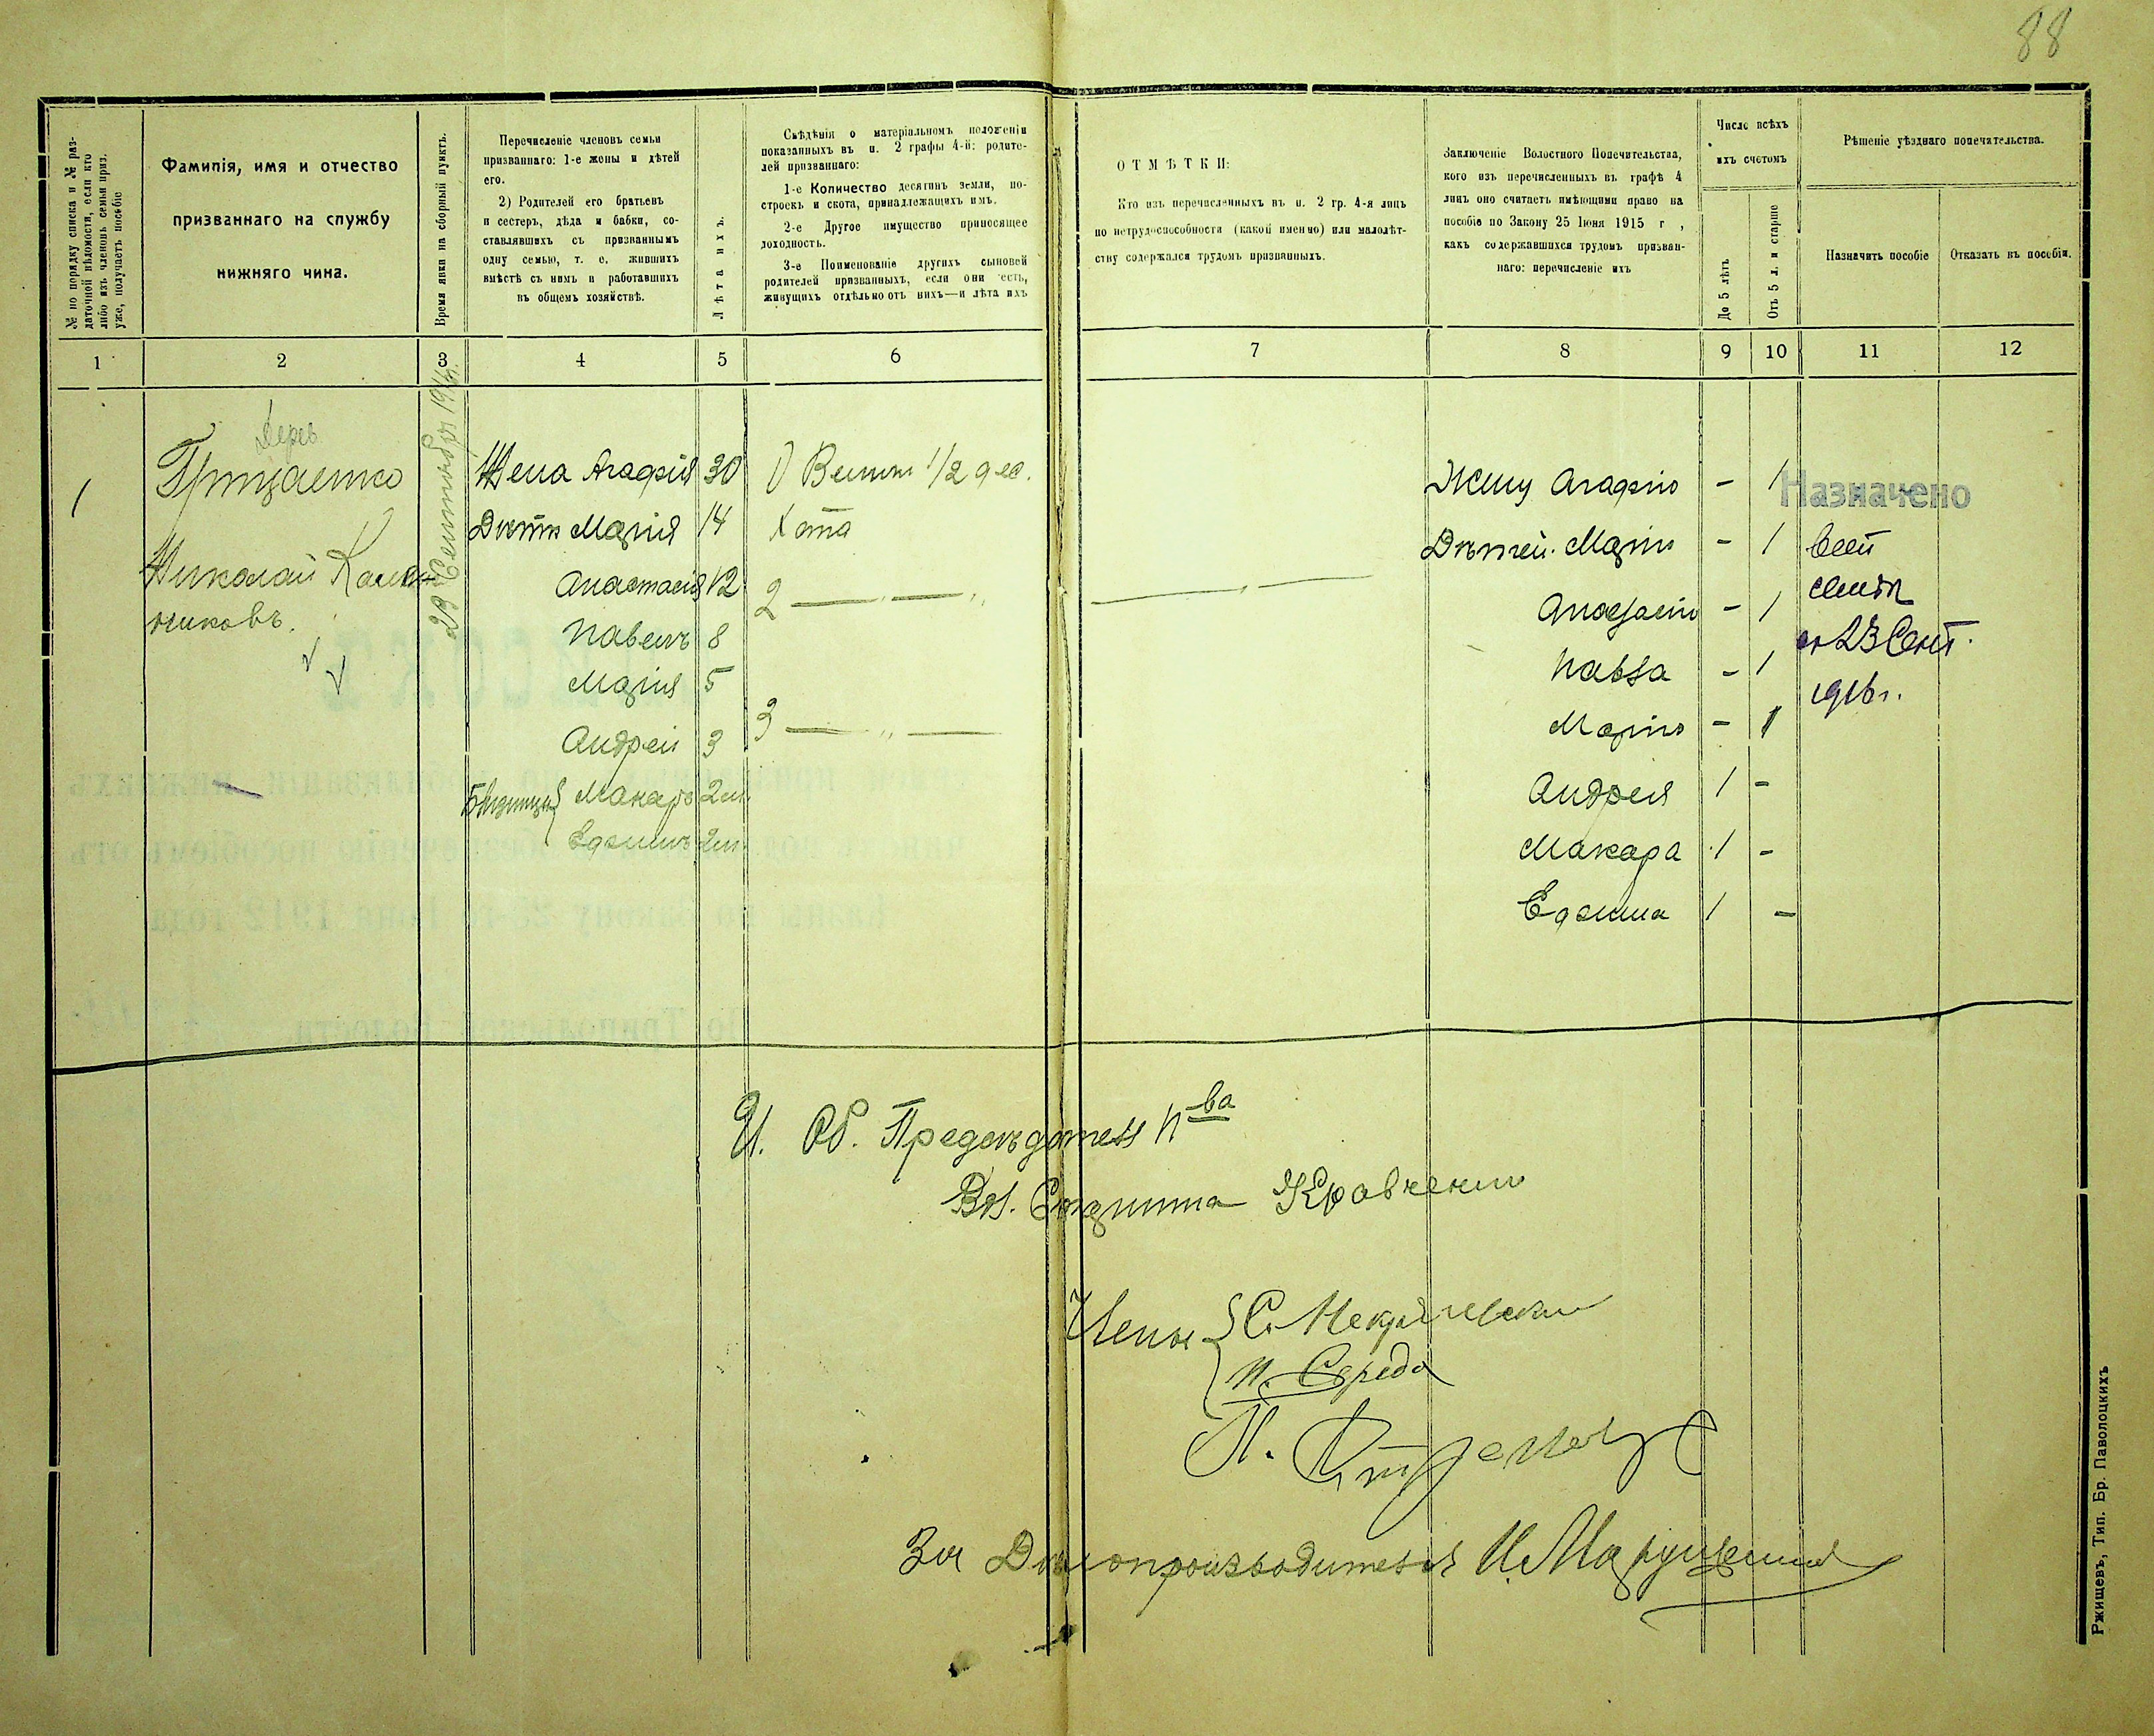 88
№ по порядку списка и № раз-
даточной вѣдомости, если кто
либо изъ членовъ семьи приз.
уже, получаетъ пособіе
Фамилія, имя и отчество
призваннаго на службу
нижняго чина.
Время явки на сборный пунктъ.
Перечисленіе членовъ семьи
призваннаго: 1-е жены и дѣтей
его.
2) Родителей его братьевъ
и сестеръ, дѣда и бабки, со-
ставлявшихъ съ призваннымъ
одну семью, т. е. жившихъ
вмѣстѣ съ нимъ и работавшихъ
въ общемъ хозяйствѣ.
Лѣта ихъ.
Свѣдѣнія о матеріальномъ положеніи
показанныхъ въ п. 2 графы 4-й: родите-
лей призваннаго:
1-е Количество десятинъ земли, по-
строекъ и скота, принадлежащихъ имъ.
2-е Другое имущество приносящее
доходность.
3-е Поименованіе другихъ сыновей
родителей призванныхъ, если они есть,
живущихъ отдѣльно отъ нихъ—и лѣта ихъ
ОТМѢТКИ:
Кто изъ перечисленныхъ въ п. 2 гр. 4-я лицъ
по нетрудоспособности (какой именно) или малолѣт-
ству содержался трудомъ призванныхъ.
Заключеніе Волостного Попечительства,
кого изъ перечисленныхъ въ графѣ 4
лицъ оно считаетъ имѣющими право на
пособіе по Закону 25 Іюня 1915 г ,
какъ содержавшихся трудомъ призван-
наго: перечисленіе ихъ
Число всѣхъ
ихъ счетомъ
До 5 лѣтъ
Отъ 5 л. и старше
Рѣшеніе уѣзднаго попечительства.
Назначить пособіе
Отказать въ пособіи.
1 2 3 4 5 6 7 8 9 10 11 12
Дерев
1 Грищенко
Николай
никовъ.
29 Сентября 1916 г.
Жена Агафія 30
Дѣти Марія 14
Анастасія 12
Павелъ 8
Марія 5
Андрей 3
Близнецы { Макаръ 2 м.
Ефимъ 2 м.
1/2 дес.
Хата
2 — „ — „
3 — „ —
— „ —
Жену Агафію - 1
Дѣтей. Марію - 1
Анастасію - 1
Павла - 1
Марію - 1
Андрея 1 -
Макара 1 -
Ефима 1 -
Назначено
всей
семьѣ
съ 23 Сент.
1916 г.
И. Об. Предсѣдателя П-ва
Вол. Старшина
Члены { С.
П. Середа
П.
За Дѣлопроизводителя И.
Ржищевъ, Тип. Бр. Паволоцкихъ